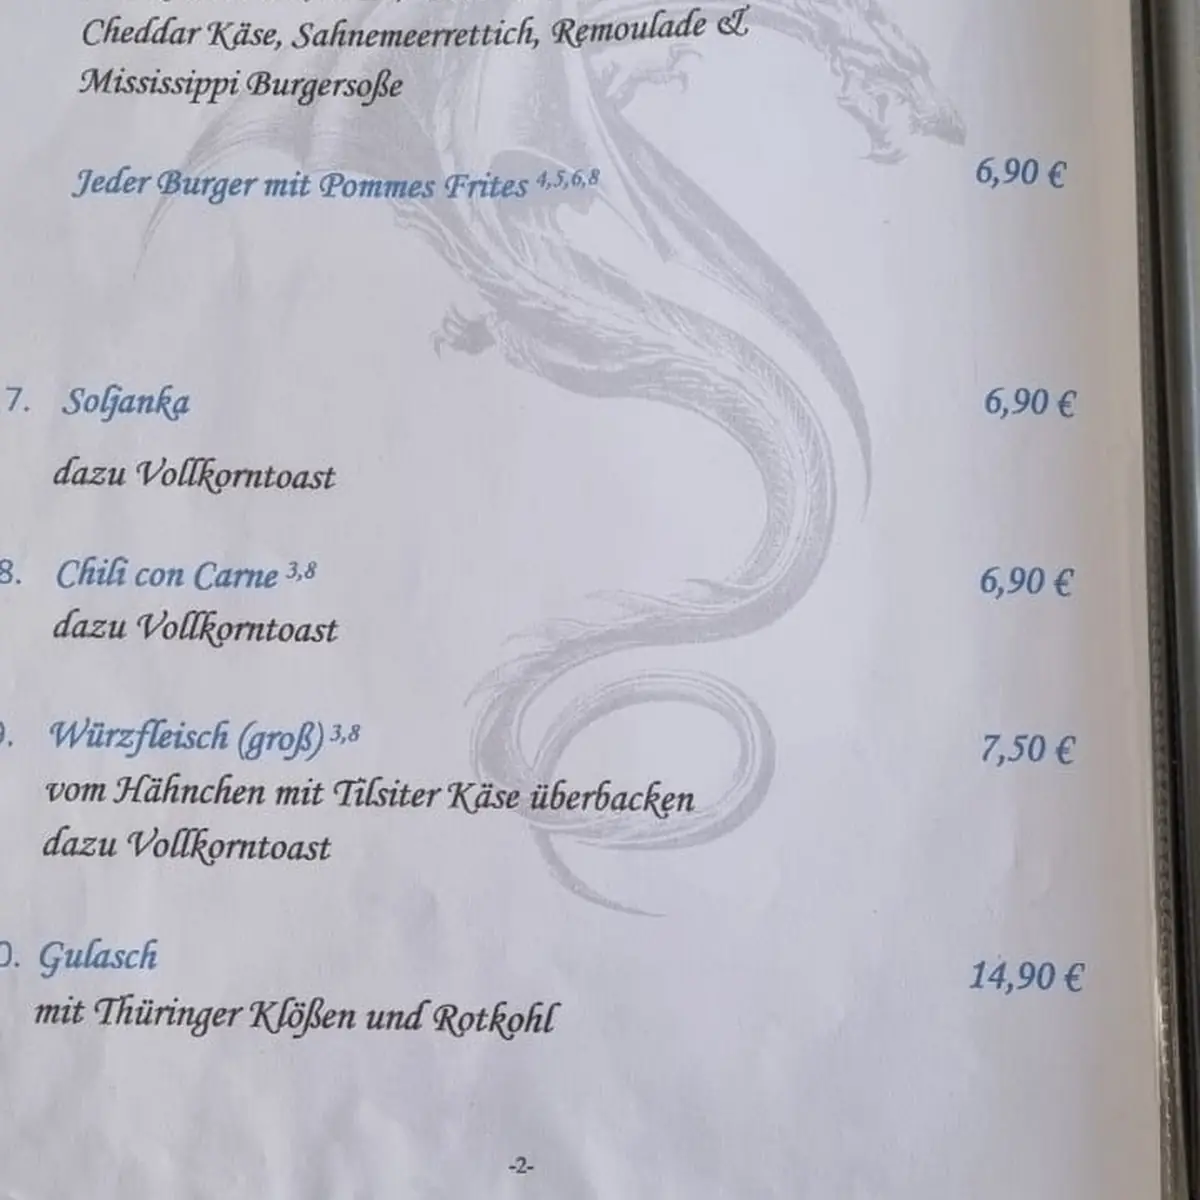 Cheddar Käse, Sahnemeerrettich, Remoulade &
Mississippi Burgersoße
Jeder Burger mit Pommes Frites 4,5,6,8 6,90 €
7. Soljanka 6,90 €
dazu Vollkorntoast
8. Chili con Carne 3,8 6,90 €
dazu Vollkorntoast
Würzfleisch (groß) 3,8 7,50 €
vom Hähnchen mit Tilsiter Käse überbacken
dazu Vollkorntoast
0. Gulasch 14,90 €
mit Thüringer Klößen und Rotkohl
-2-